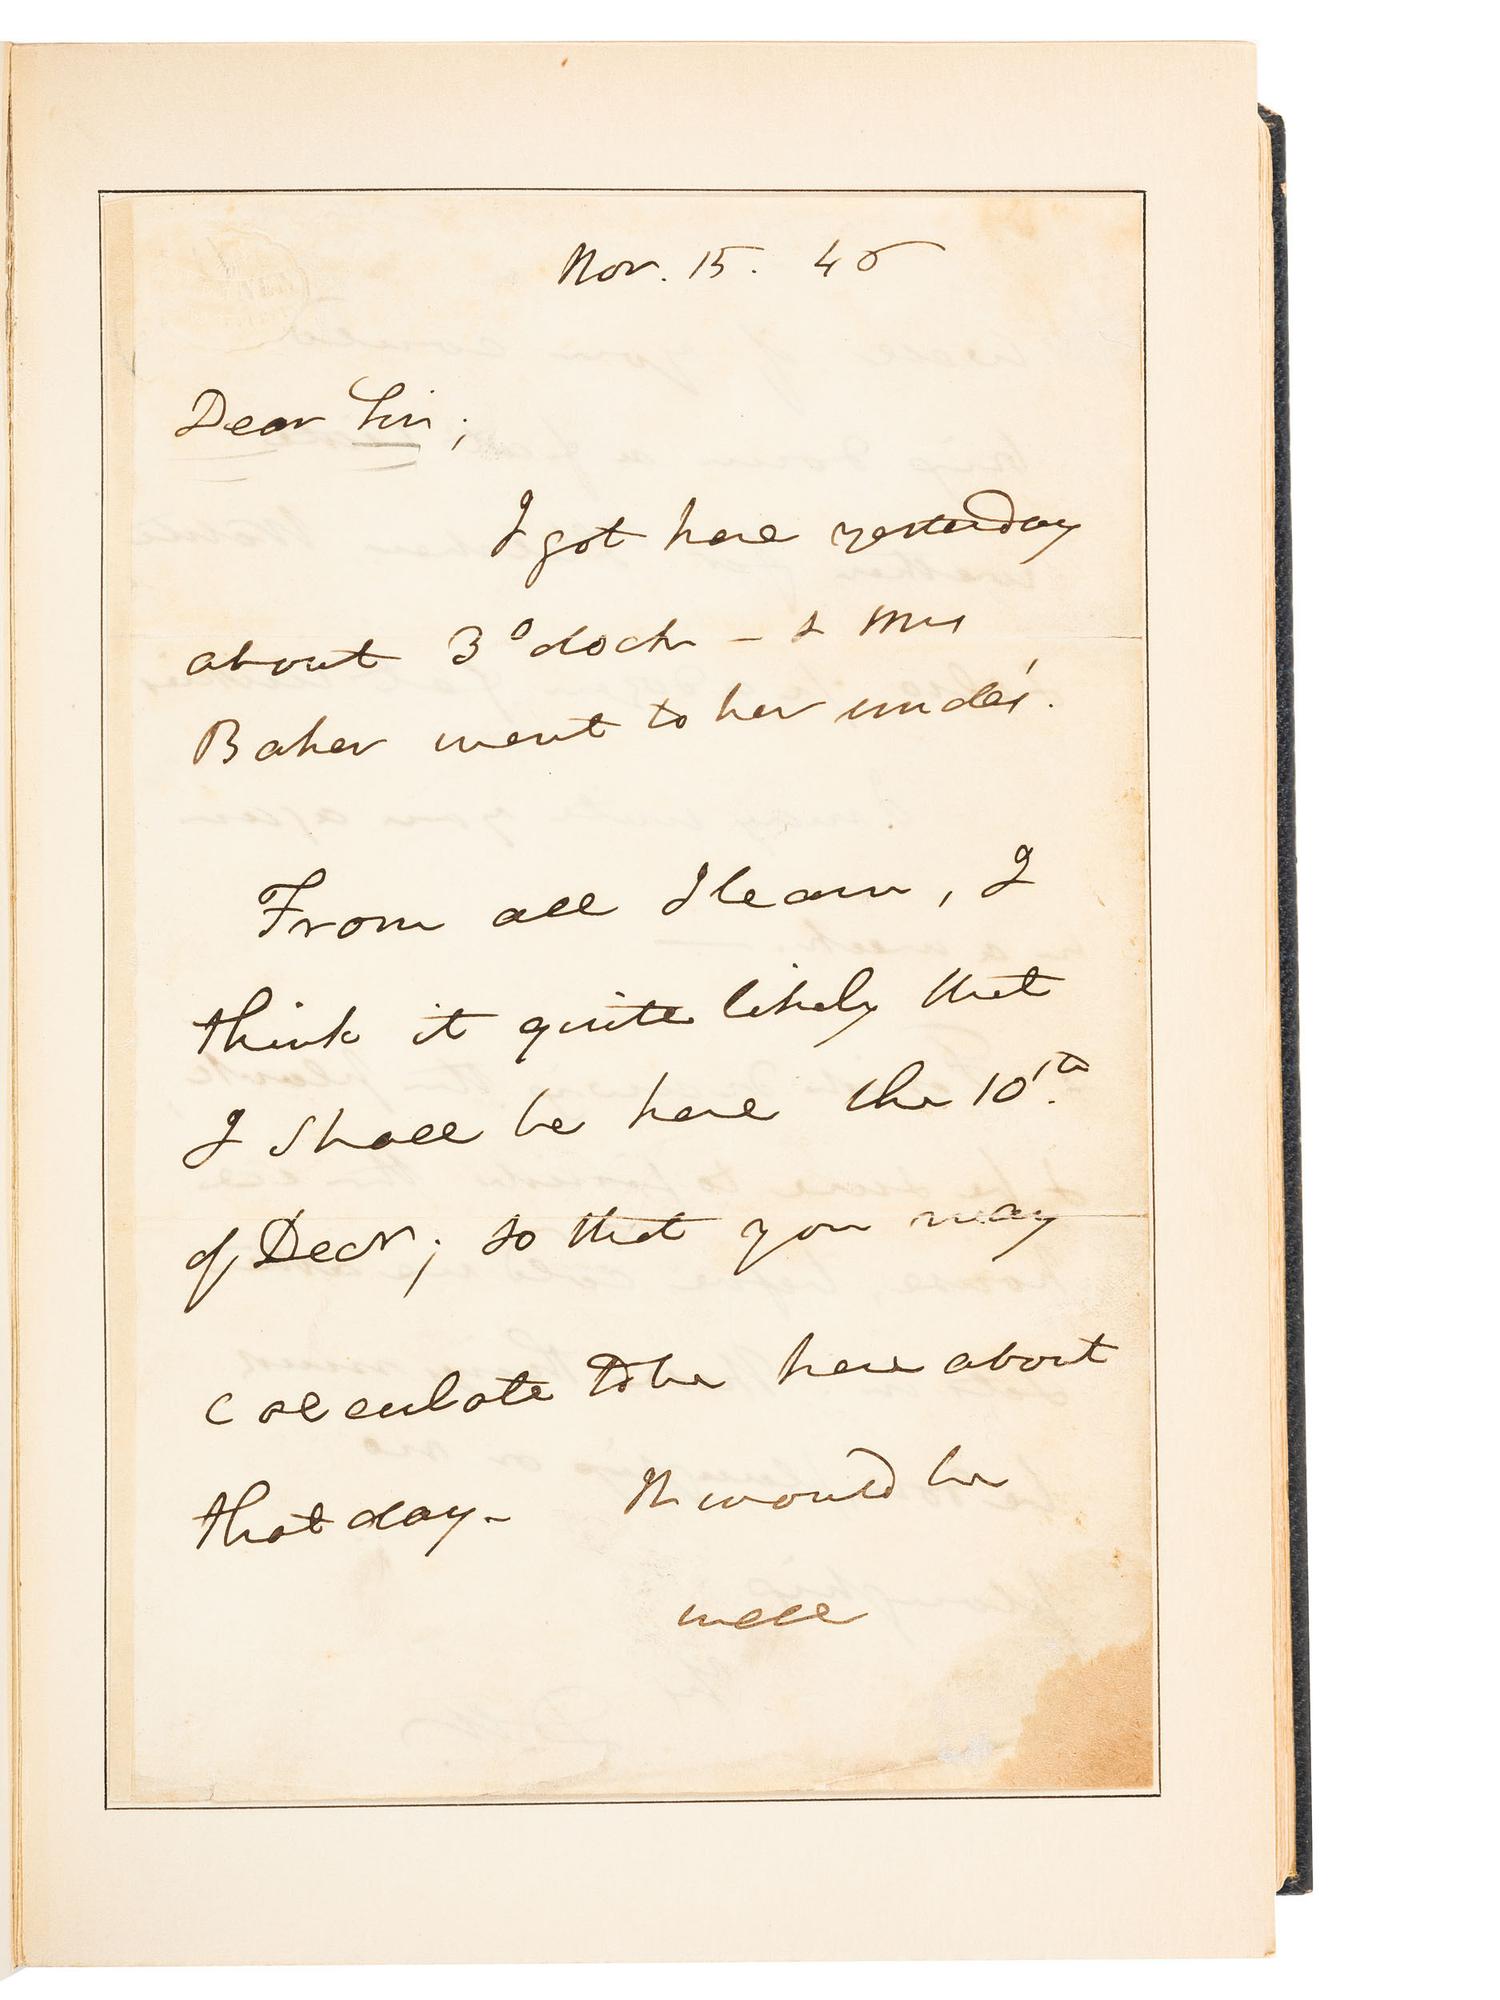 Nov. 15. 45
Dear Sir;
I got here yesterday
about 3 o'clock – & Mrs
Baker went to her uncles'.
From all I learn, I
think it quite likely that
I shall be here the 10th.
of Decr; so that you may
calculate to be here about
that day – It would be
well